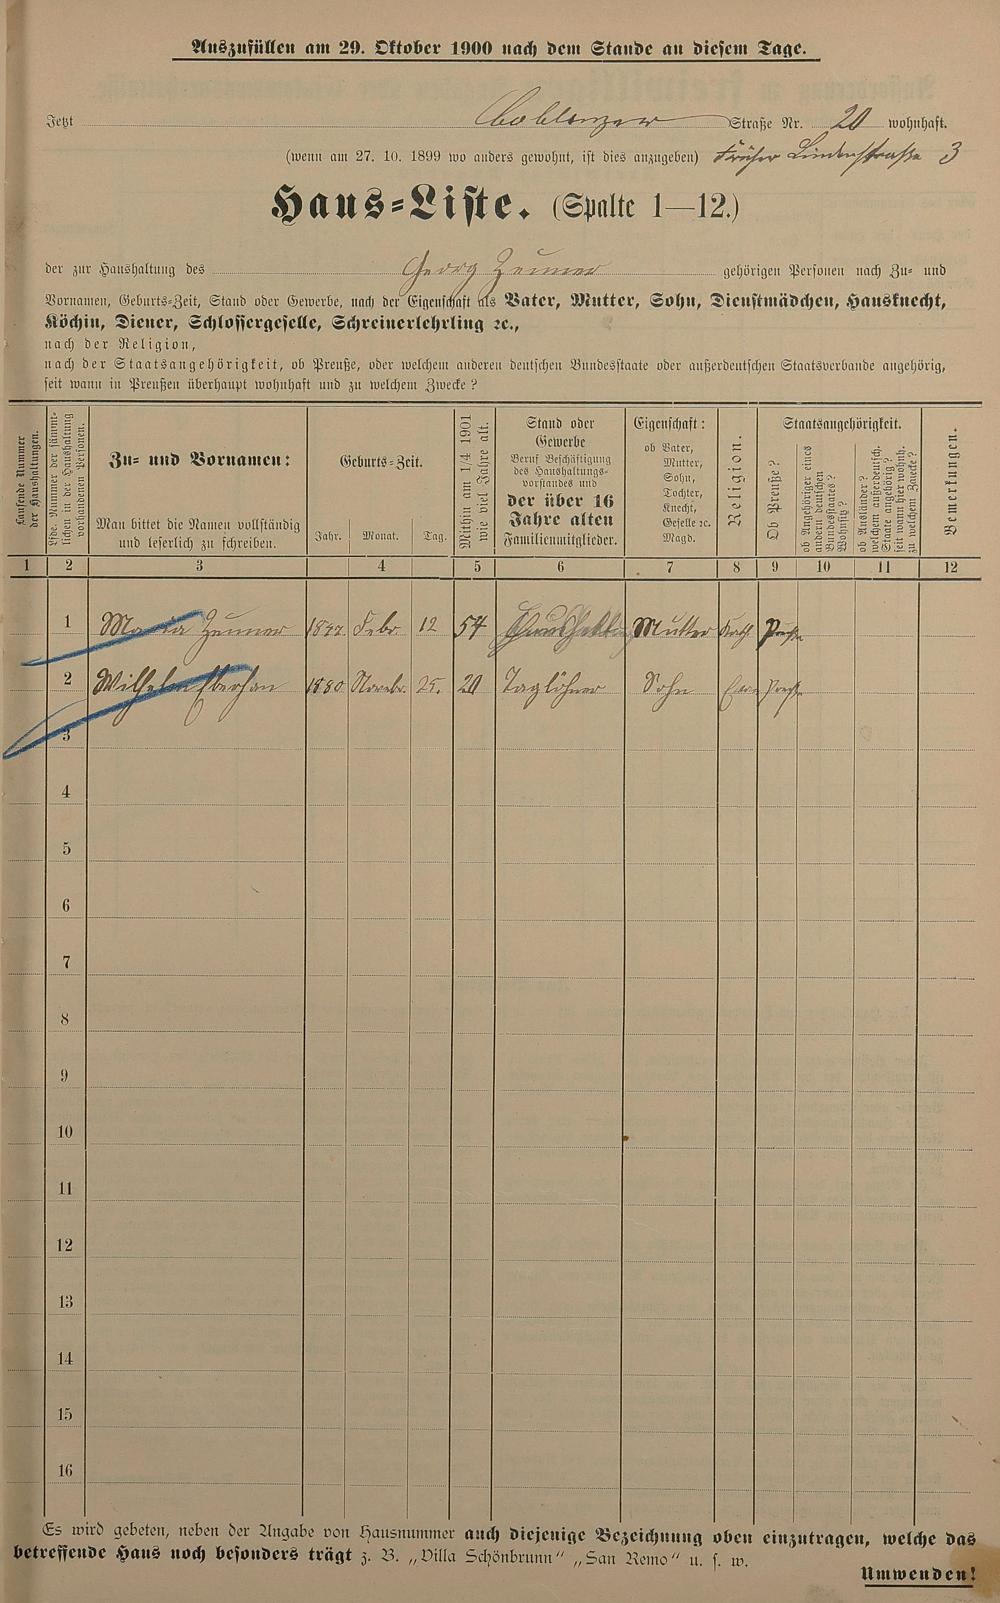 Auszufüllen am 29. Oktober 1900 nach dem Stande an diesem Tage.
Jetzt Coblenzer Straße Nr. 20 wohnhaft.
(wenn am 27. 10. 1899 wo anders gewohnt, ist dies anzugeben) Früher Lindenstraße 3
Haus-Liste. (Spalte 1—12.)
der zur Haushaltung des Georg Zeuner gehörigen Personen nach Zu- und
Vornamen, Geburts-Zeit, Stand oder Gewerbe, nach der Eigenschaft als Vater, Mutter, Sohn, Dienstmädchen, Hausknecht,
Köchin, Diener, Schlossergeselle, Schreinerlehrling ꝛc.,
nach der Religion,
nach der Staatsangehörigkeit, ob Preuße, oder welchem anderen deutschen Bundesstaate oder außerdeutschen Staatsverbande angehörig,
seit wann in Preußen überhaupt wohnhaft und zu welchem Zwecke?
Laufende Nummer
der Haushaltungen.
Lfde. Nummer der sämmt-
lichen in der Haushaltung
vorhandenen Personen.
Zu- und Vornamen:
Man bittet die Namen vollständig
und leserlich zu schreiben.
Geburts-Zeit.
Jahr. Monat. Tag.
Mithin am 1/4 1901
wie viel Jahre alt.
Stand oder
Gewerbe
Beruf Beschäftigung
des Haushaltungs-
vorstandes und
der über 16
Jahre alten
Familienmitglieder.
Eigenschaft:
ob Vater,
Mutter,
Sohn,
Tochter,
Knecht,
Geselle ꝛc.
Magd.
Religion.
Staatsangehörigkeit.
Ob Preuße?
ob Angehöriger eines
andern deutschen
Bundesstaates?
Wohnsitz?
ob Ausländer?
welchem außerdeutsch.
Staate angehörig?
seit wann hier wohnh.
zu welchem Zwecke?
Bemerkungen.
1 2 3 4 5 6 7 8 9 10 11 12
1 Maria Zeuner 1847 Febr. 12 54 Mutter Kath. Preuße
2 Wilhelm 1880 Novebr. 25. 20 Taglöhner Sohn Preuße
3
4
5
6
7
8
9
10
11
12
13
14
15
16
Es wird gebeten, neben der Angabe von Hausnummer auch diejenige Bezeichnung oben einzutragen, welche das
betreffende Haus noch besonders trägt z. B. „Villa Schönbrunn“ „San Remo“ u. s. w.
Umwenden!